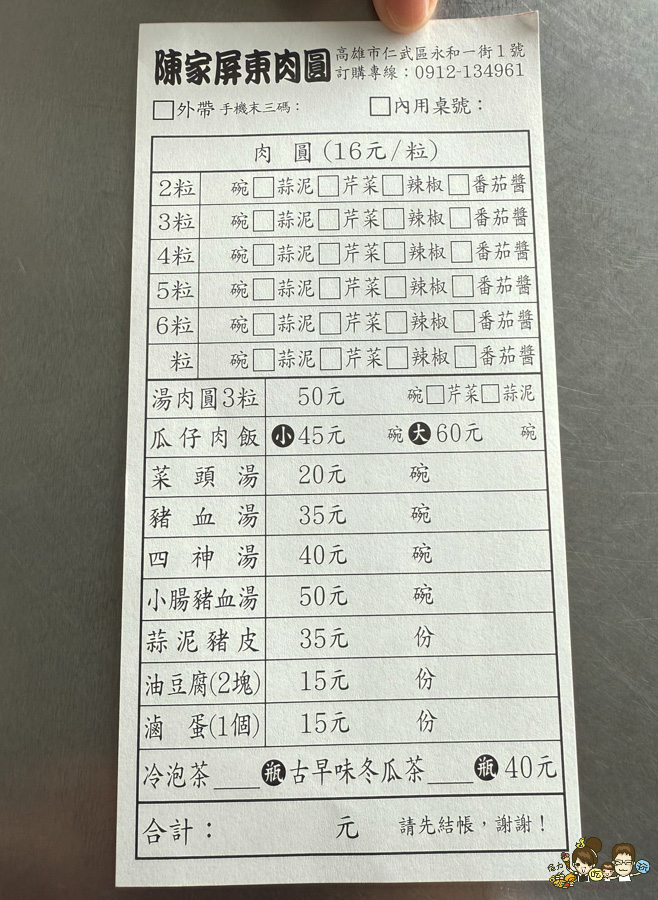 陳家屏東肉圓
高雄市仁武區永和一街1號
訂購專線：0912-134961
□外帶 手機末三碼： □內用桌號：
肉 圓 (16元/粒)
2粒 碗□蒜泥□芹菜□辣椒□番茄醬
3粒 碗□蒜泥□芹菜□辣椒□番茄醬
4粒 碗□蒜泥□芹菜□辣椒□番茄醬
5粒 碗□蒜泥□芹菜□辣椒□番茄醬
6粒 碗□蒜泥□芹菜□辣椒□番茄醬
粒 碗□蒜泥□芹菜□辣椒□番茄醬
湯肉圓3粒 50元 碗□芹菜□蒜泥
瓜仔肉飯 小45元 碗 大60元 碗
菜頭湯 20元 碗
豬血湯 35元 碗
四神湯 40元 碗
小腸豬血湯 50元 碗
蒜泥豬皮 35元 份
油豆腐(2塊) 15元 份
滷 蛋(1個) 15元 份
冷泡茶___瓶古早味冬瓜茶___瓶 40元
合計： 元 請先結帳，謝謝！